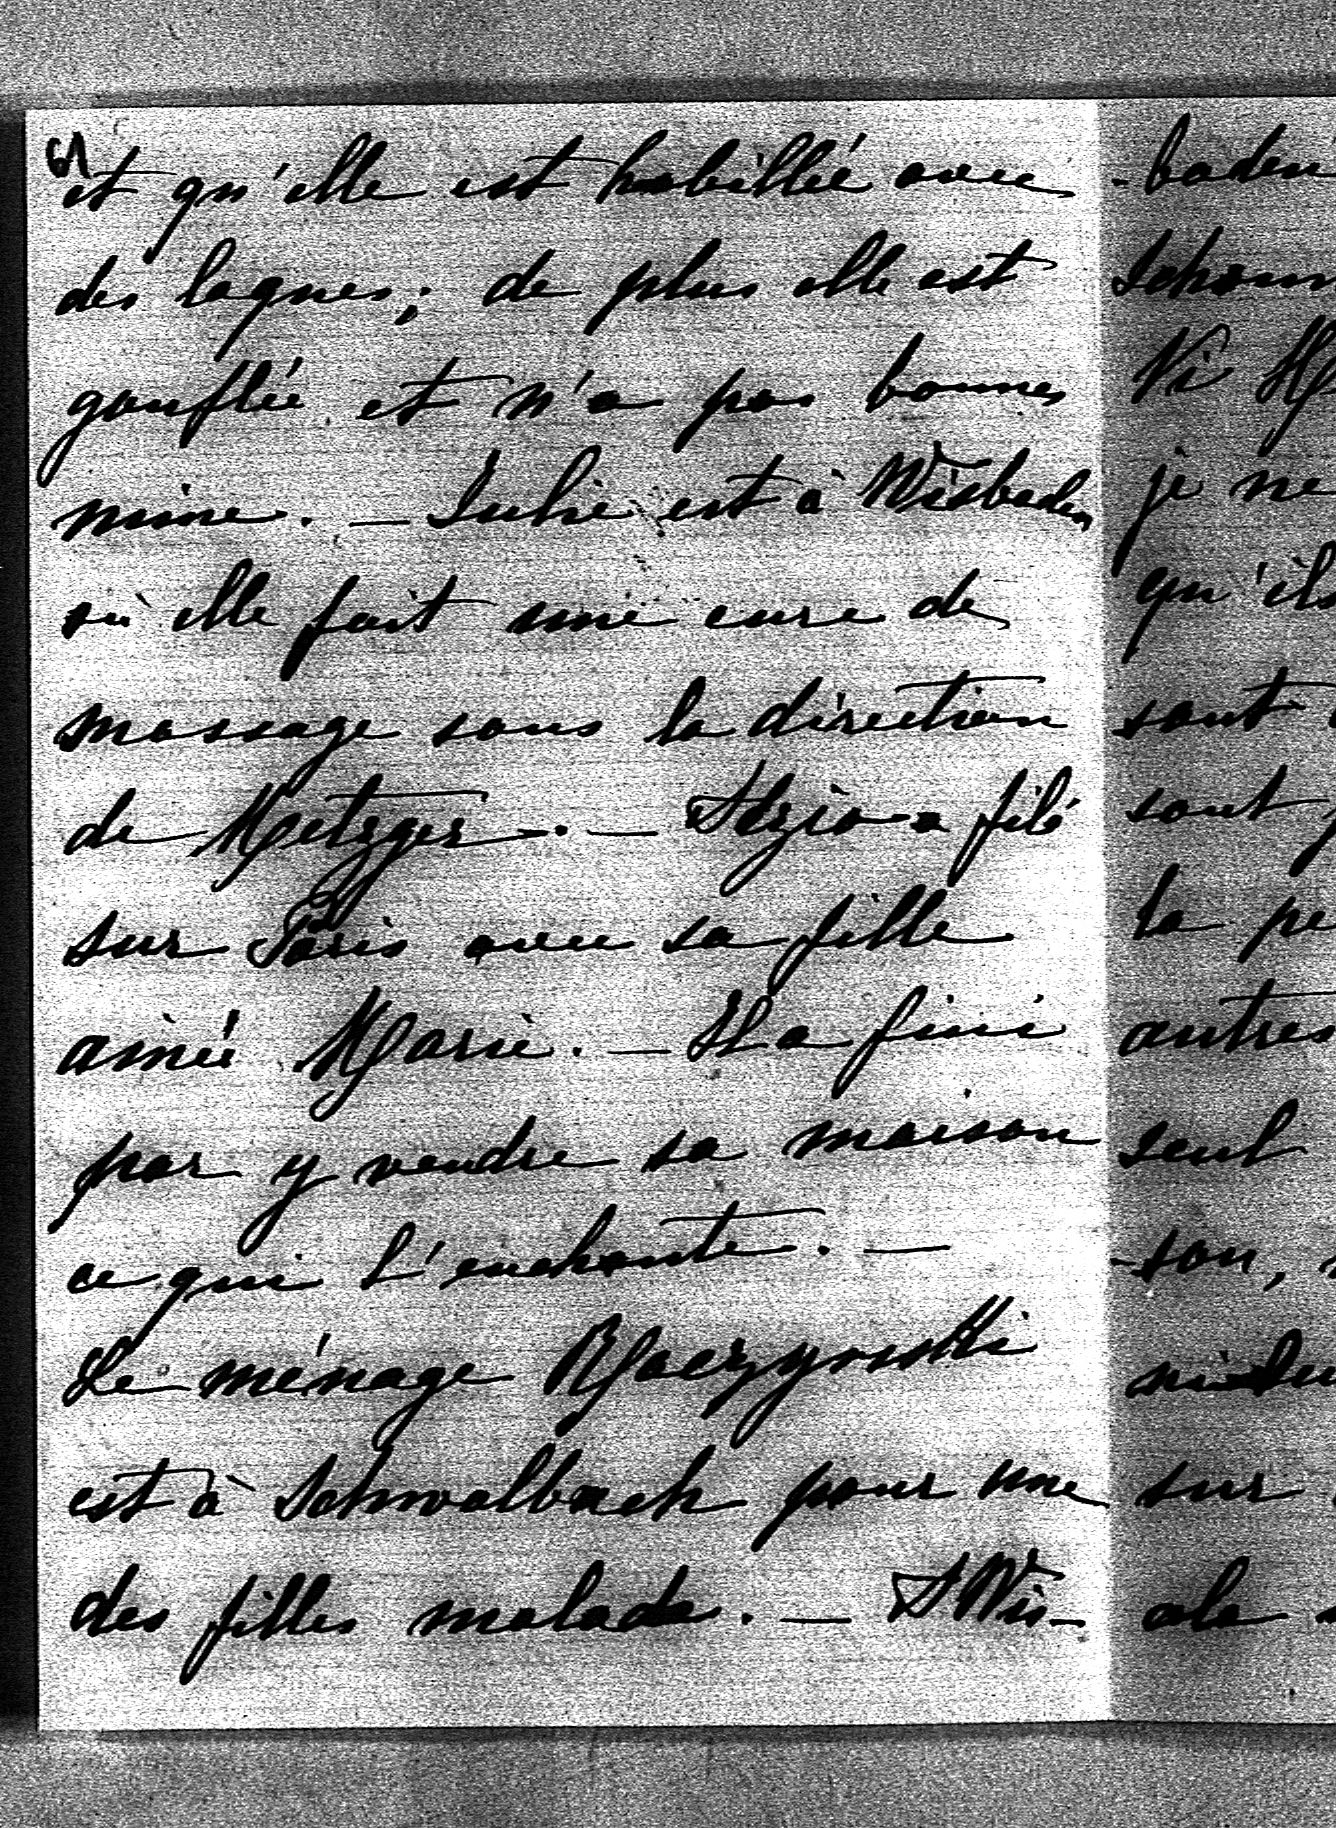 61
et qu'elle est habillée avec
des loques; de plus elle est
gonflée et n'a pas bonne
mine. — Julie est à Wisbaden
où elle fait une cure de
massage sous la direction
de Metzger. — a filé
sur Paris avec sa fille
ainée Marie. — Il a fini
par y vendre sa maison
ce qui l'enchante. —
Le ménage Raczynski
est à Schwalbach pour une
des filles malade. — A Wis-
-baden
je ne
qu'ils
sont
sont
la pe
autres
seul
-son,
sur